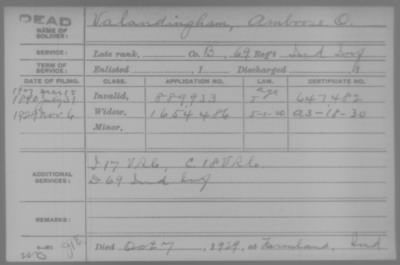 DEAD Valandingham, Ambrose O.
NAME OF SOLDIER:
SERVICE: Late rank, Co. B, 69 Reg't Ind Inf
TERM OF SERVICE: Enlisted 1 Discharged 1
DATE OF FILING. CLASS. APPLICATION NO. LAW. CERTIFICATE NO.
1890 July 31 Invalid, 889,933 647482
1929 Nov 6 Widow, 1654486 5-1-20 A3-18-30
Minor,
ADDITIONAL SERVICES: I 17 VRC, C 18 VRC
D 69 Ind Inf
REMARKS:
Died Oct 7, 1929, at Farmland, Ind